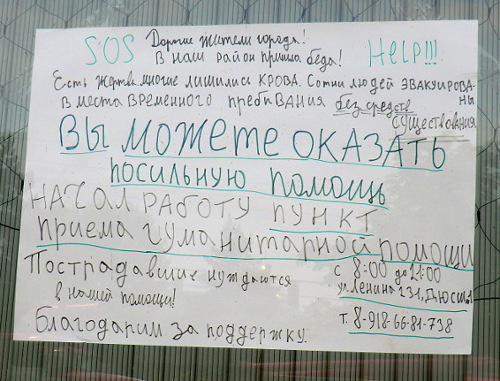 SOS Дорогие жители города! Help!!!
В наш район пришла беда!
Есть жертвы, многие лишились КРОВА. Сотни людей эвакуированы
В места временного пребывания без средств
существования
Вы можете оказать
посильную помощь
НАЧАЛ РАБОТУ ПУНКТ
приема гуманитарной помощи
Пострадавшие нуждаются
в нашей помощи!
с 8:00 до 21:00
ул Ленина 231,
Благодарим за поддержку.
т. 8-918-66-81-738